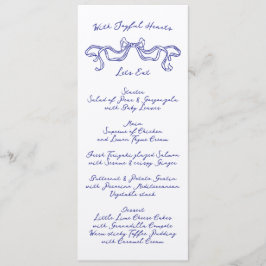 With Joyful Hearts
Let's Eat
Starter
Salad of Pear & Gorgonzola
with Baby Leaves
Main
Supreme of Chicken
and Lemon Thyme Cream
Fresh Teriyaki glazed Salmon
with Sesame & crispy Ginger
Butternut & Potato Gratin
with Parisian Mediterranean
Vegetable stack
Dessert
Little Lime Cheese Cakes
with Granadilla Compote
Warm sticky Toffee Pudding
with Caramel Cream